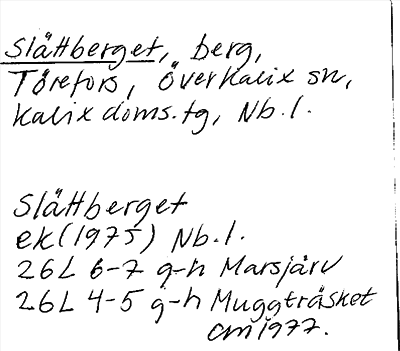 Slättberget, berg,
Törefors, Överkalix sn,
Kalix doms. tg, Nb. l.
Slättberget
ek (1975) Nb. l.
26L 6-7 g-h Marsjärv
26L 4-5 g-h Muggträsket
CM 1977.